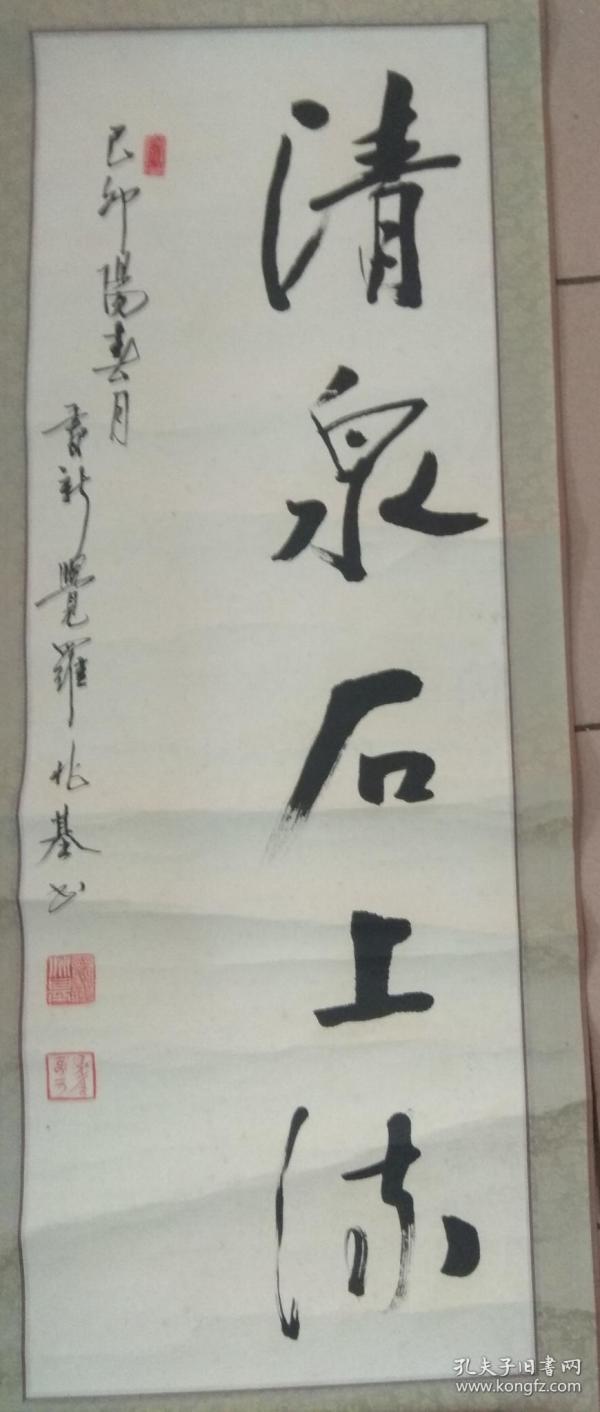 清泉石上流
己卯陽春月
愛新覺羅兆基书
孔夫子旧書网
www.kongfz.com